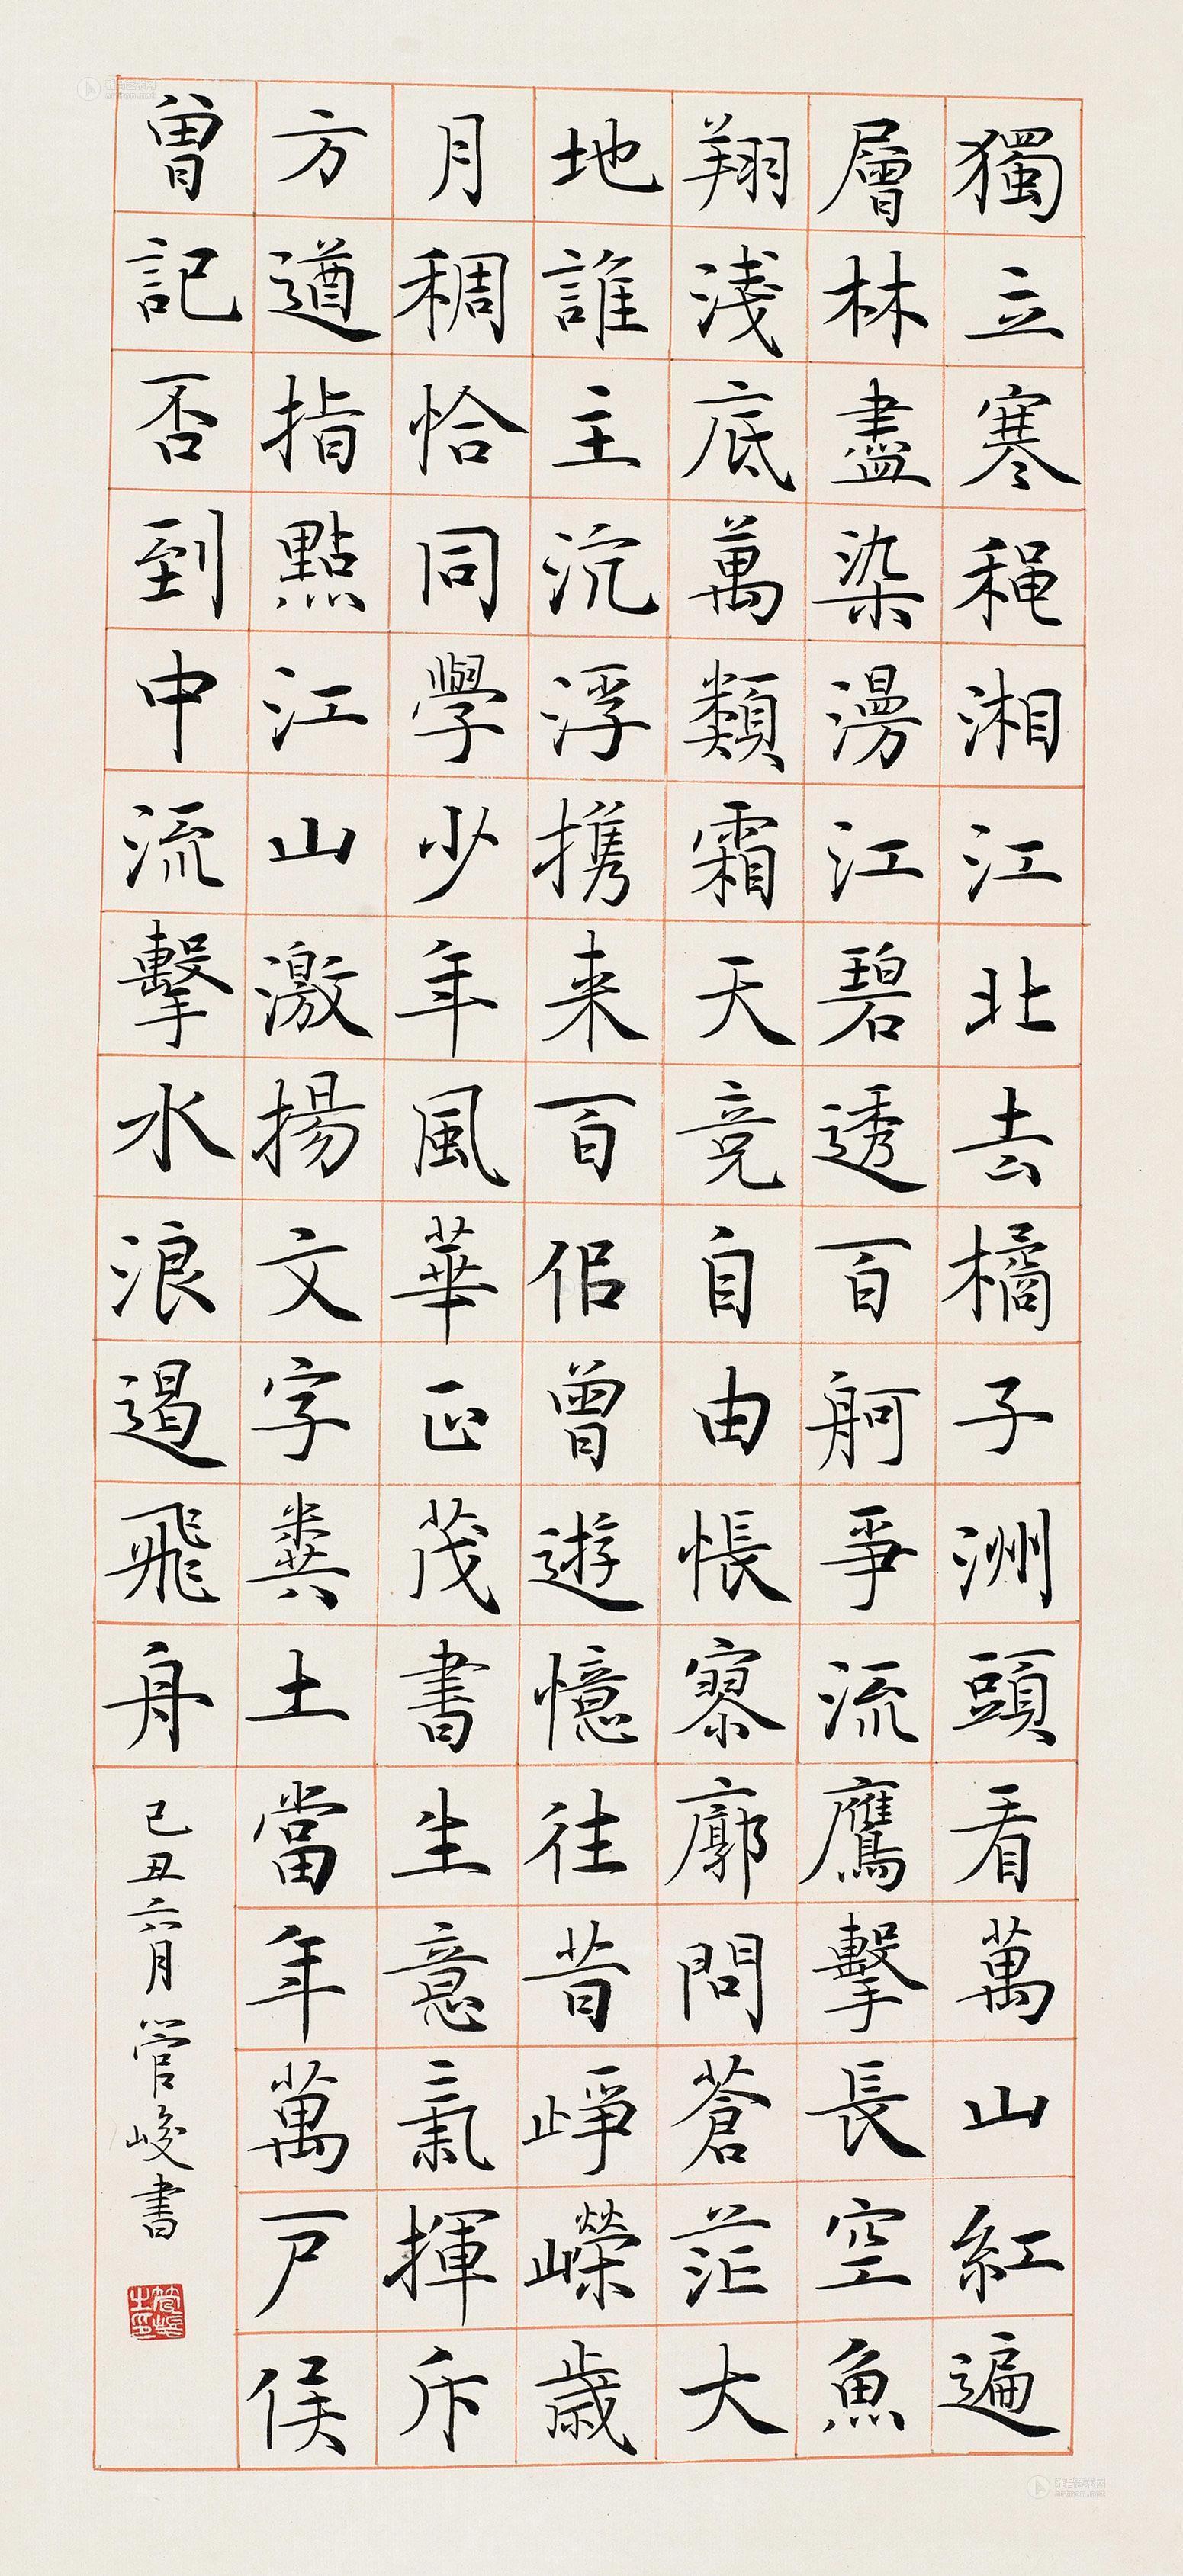 獨立寒穐湘江北去橘子洲頭看萬山紅遍
層林盡染漫江碧透百舸爭流鷹擊長空魚
翔淺底萬類霜天競自由悵寥廓問蒼茫大
地誰主沉浮攜来百侶曾遊憶往昔崢嶸歲
月稠恰同學少年風華正茂書生意氣揮斥
方遒指點江山激揚文字糞土當年萬戶侯
曾記否到中流擊水浪遏飛舟
己丑六月管峻書